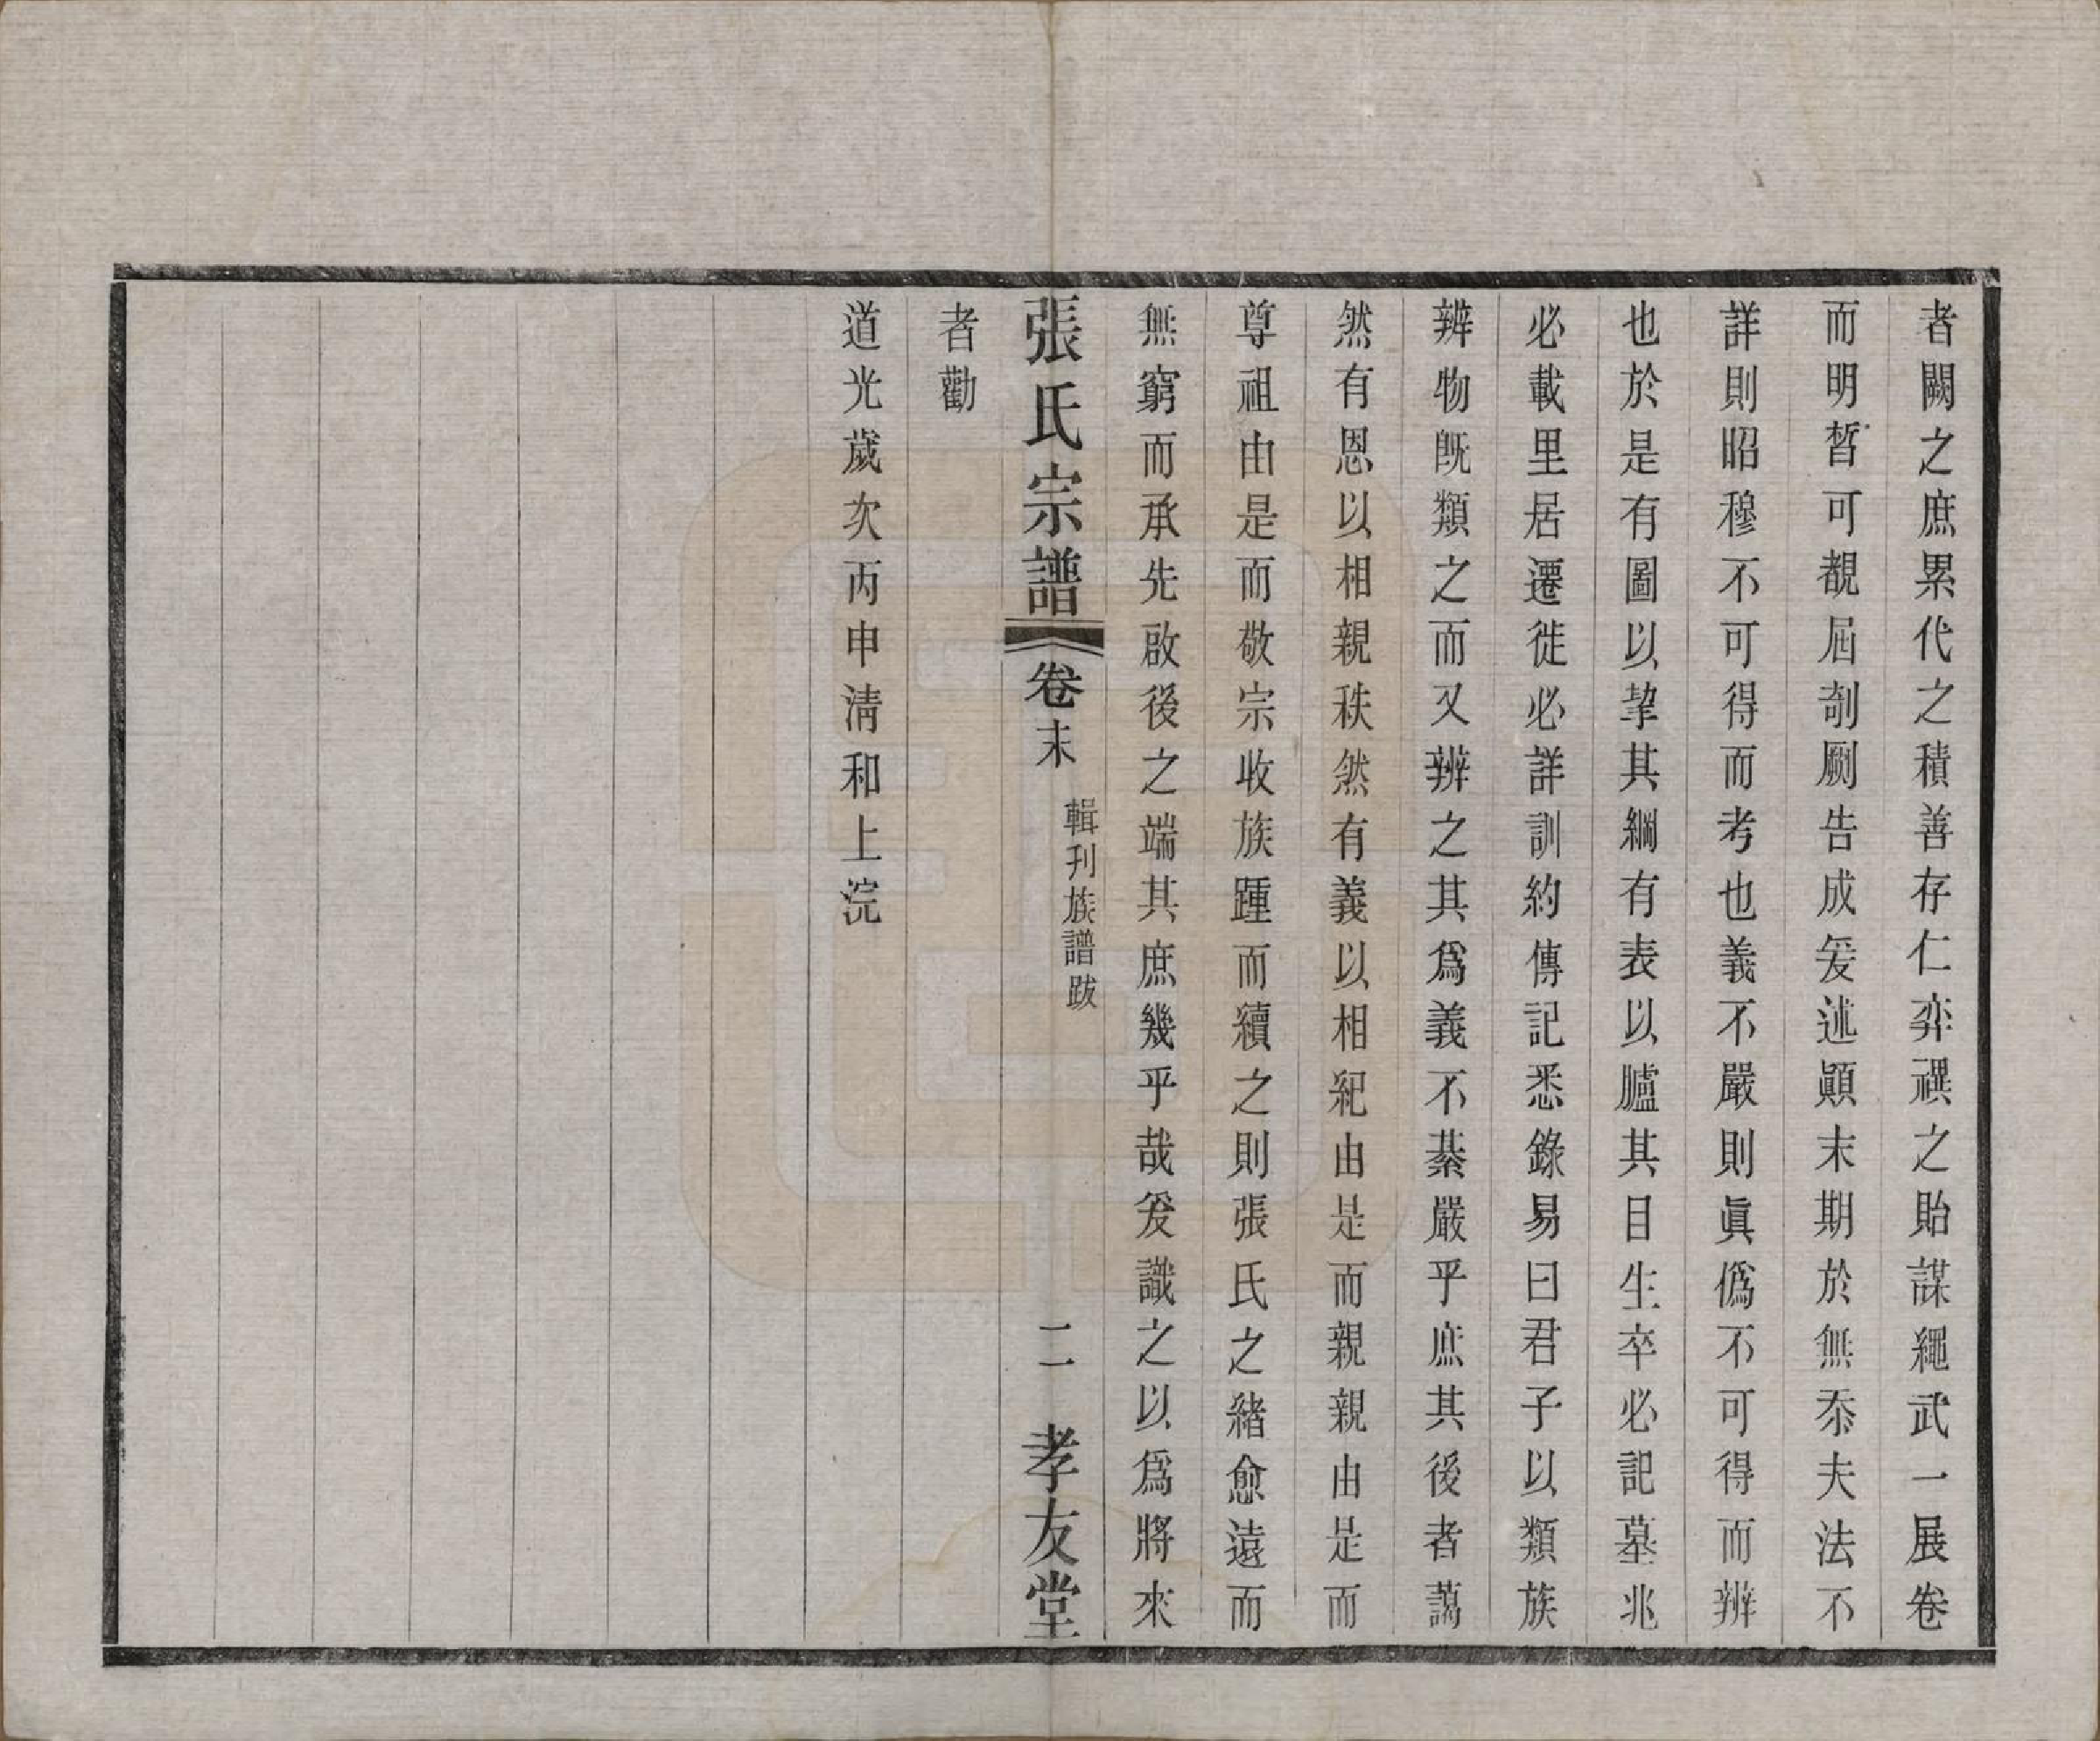 者闕之庶累代之積善存仁弈禩之貽謀繩武一展卷
而明晢可覩屆剞劂告成爰述顚末期於無忝夫法不
詳則昭穆不可得而考也義不嚴則眞僞不可得而辨
也於是有圖以挈其綱有表以臚其目生卒必記墓兆
必載里居遷徙必詳訓約傳記悉錄易曰君子以類族
辨物旣類之而又辨之其爲義不綦嚴乎庶其後者藹
然有恩以相親秩然有義以相紀由是而親親由是而
尊祖由是而敬宗收族踵而續之則張氏之緒愈遠而
無窮而承先啟後之端其庶幾乎哉爰識之以爲將來
張氏宗譜 卷末 輯刊族譜跋 二 孝友堂
者勸
道光歲次丙申淸和上浣